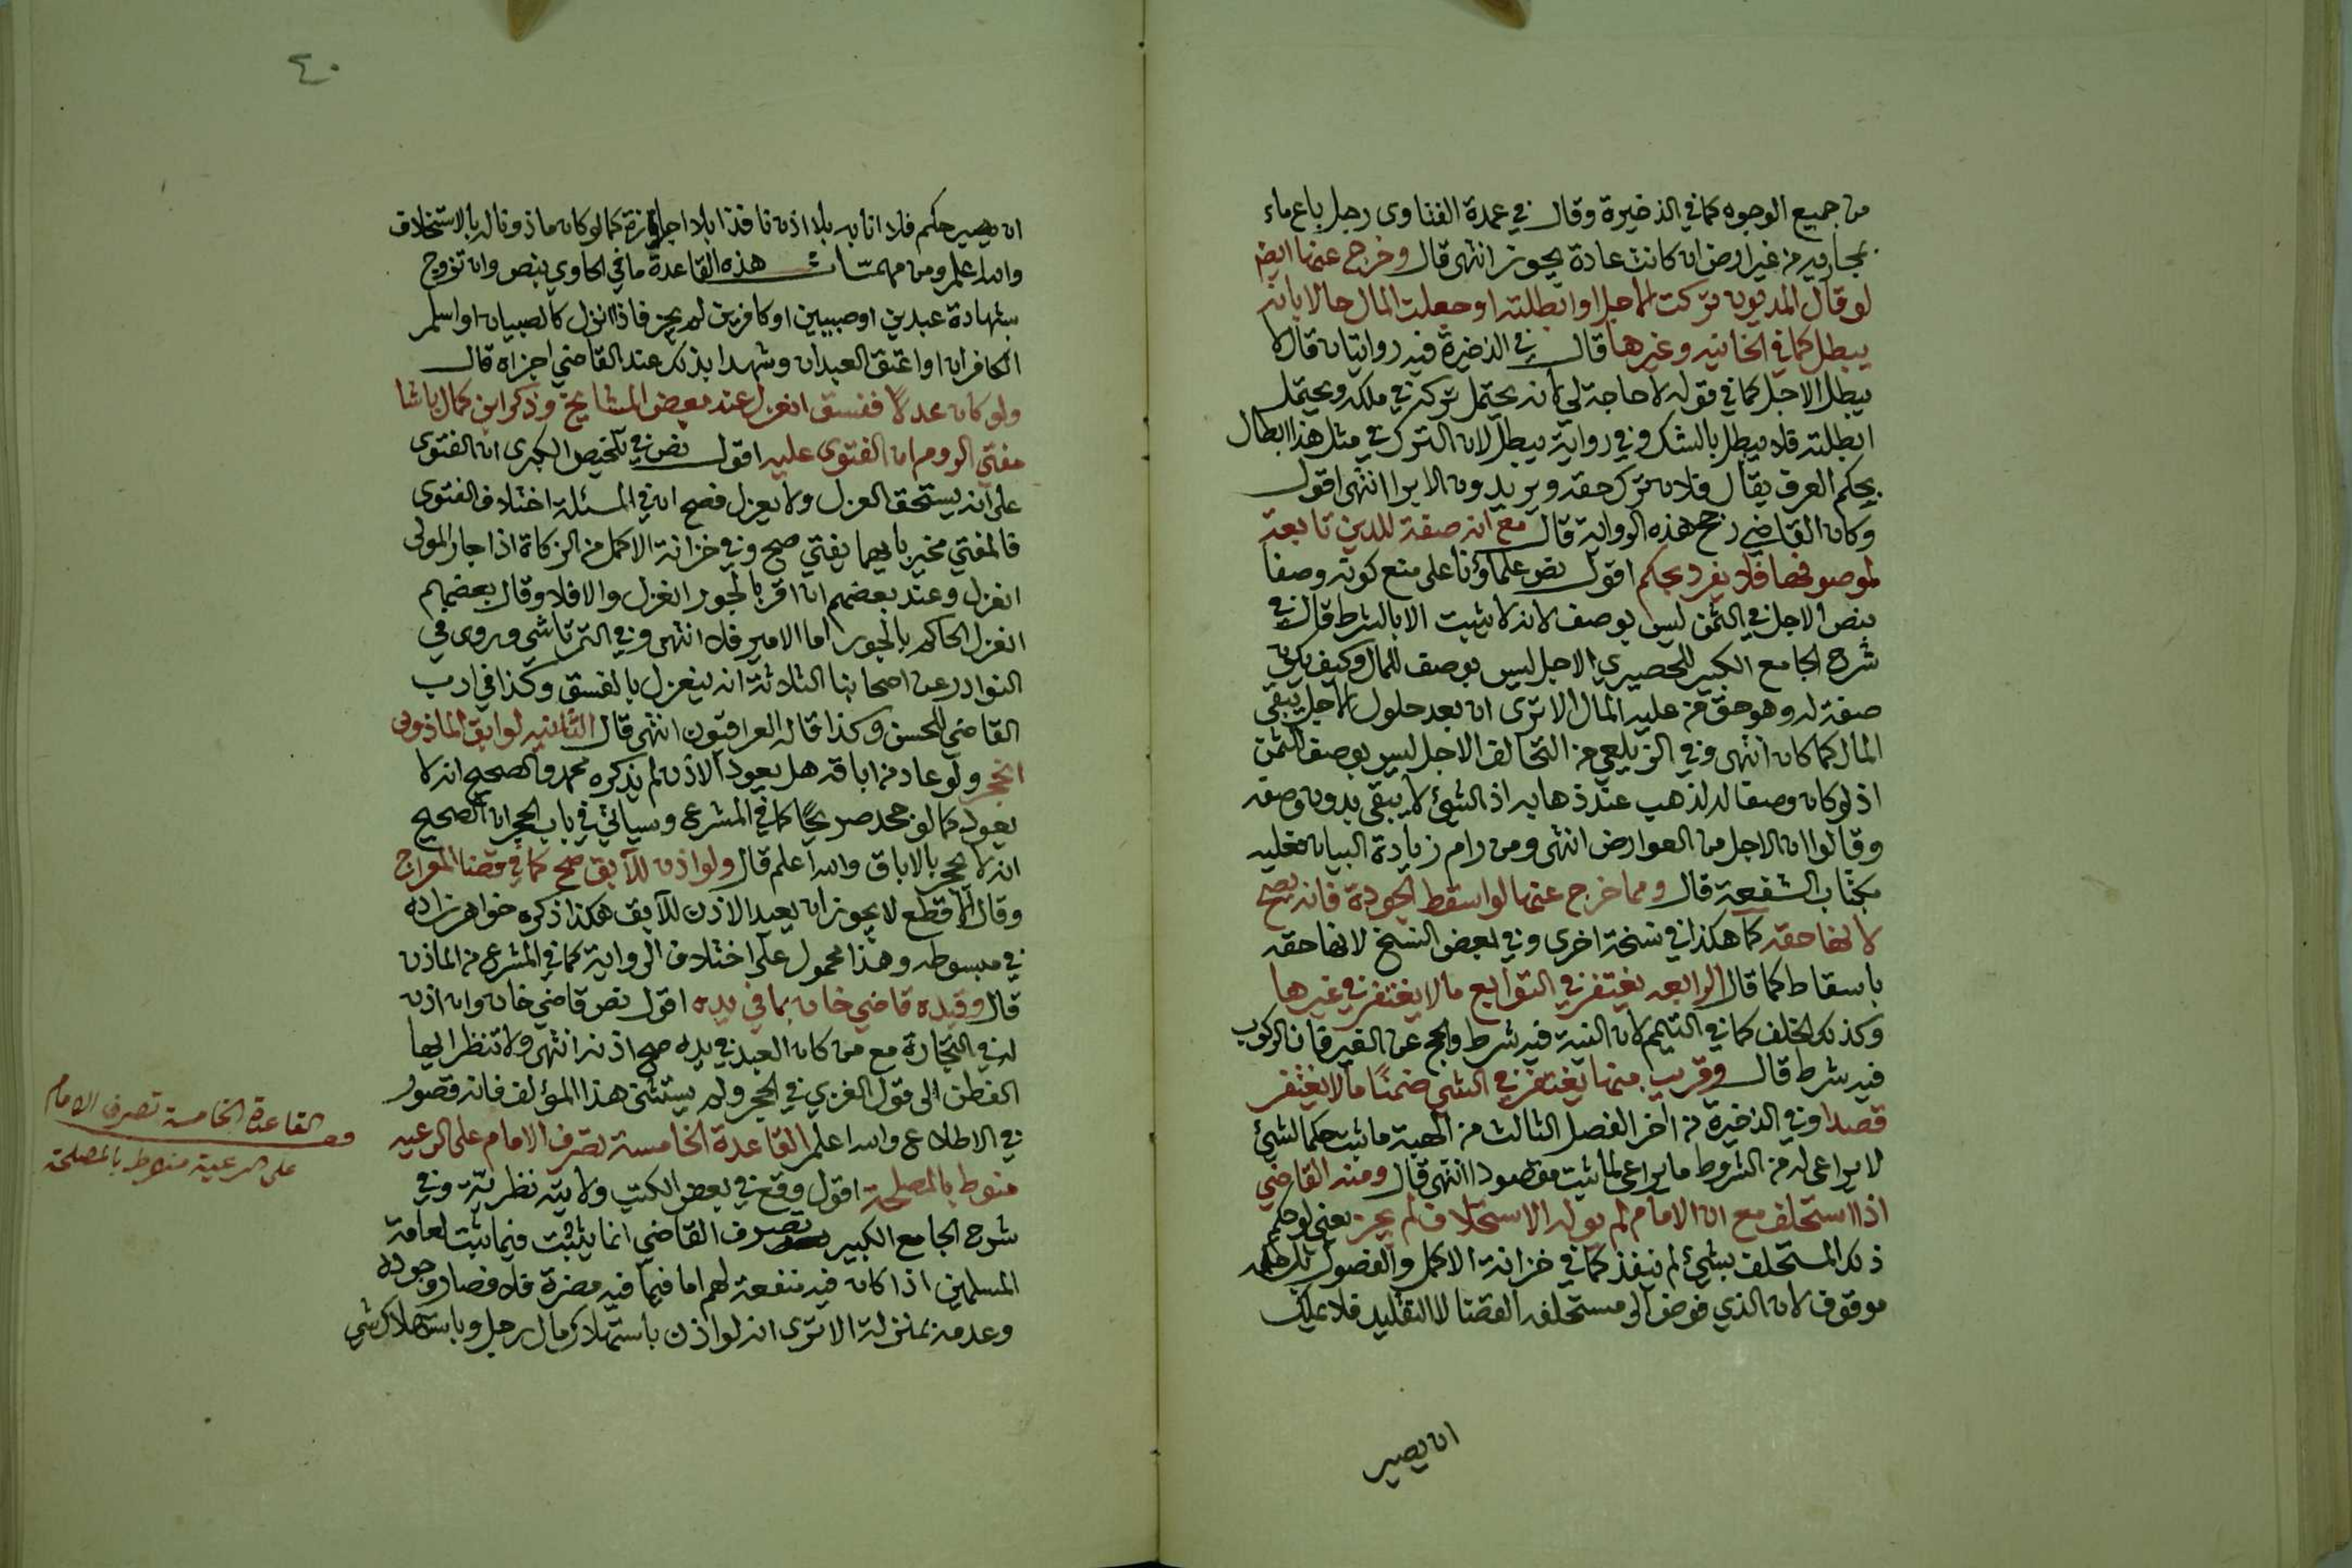 من جميع الوجوه كما في الذخيرة وقال في عمدة الفتاوى رجل باع ماء
بمجاريه من غير ارض ان كانت عادة يجوز انتهى قال وخرج عنها ايضا
لو قال المديون تركت الاجل او ابطلته او جعلت المال حالا بانه
يبطل كما في الخانيه وغيرها قال في الذخيرة فيه روايتان قال لا
يبطل الاجل كما في قوله لا حاجة لي لانه يحتمل تركه في ملكه ويحتمل
ابطلته فلا يبطل بالشك وفي رواية يبطل لان الترك في مثل هذا ابطال
بحكم العرف يقال فلان ترك حقه ويريدون الابرا انتهى اقول
وكان القاضي رجح هذه الرواية قال مع انه صفة للدين تابعة
لموصوفها فلا يفرد بحكم اقول نص علماؤنا على منع كونه وصفا
بنص الاجل في الثمن ليس بوصف لانه لا يثبت الا بالشرط قال في
شرح الجامع الكبير للحصيري الاجل ليس بوصف للمال وكيف يكون
صفة له وهو حق من عليه المال الا ترى ان بعد حلول الاجل يبقى
المال كما كان انتهى وفي الزيلعي من التحالف الاجل ليس بوصف للثمن
اذ لو كان وصفا له لذهب عند ذهابه اذ الشيئ لا يبقى بدون وصفه
وقالوا ان الاجل من العوارض انتهى ومن رام زيادة البيان فعليه
بكتاب الشفعة قال ومما خرج عنها لو اسقط الجودة فانه يصح
لانها حقه كما هكذا في نسخة اخرى وفي بعض النسخ لانها حقه
باسقاط كما قال الرابعه يغتفر في التوابع مالا يغتفر في غيرها
وكذلك الخلف كما في التيمم لان النية فيه شرط والحج عن الغير فان الركوب
فيه شرط قال وقريب منها يغتفر في الشي ضمنًا مالا يغتفر
قصدا وفي الذخيرة من اخر الفصل الثالث من الهبة ما ثبت حكما لشيئ
لا يراعى له من الشروط ما يراعى لما ثبت مقصودا انتهى قال ومنه القاضي
اذا استخلف مع ان الامام لم يوله الاستخلاف لم يجز يعني لو حكم
ذلك المستخلف بشيئ لم ينفذ كما في خزانة الاكمل والفصول
موقوف لان الذي فوض الى مستخلفه القضا لا التقليد فلا يملك
ان يصير
٤٠
ان يصير حكم فلان نايبه بلا اذن نافذا بلا اجازة كما لو كان ماذونا له بالاستخلاف
والله اعلم ومن مهمّات هذه القاعدة ما في الحاوي بنص وان تزوج
بشهادة عبدين او صبيين او كافرين لم يجز فاذا انزل كالصبيان او اسلم
الكافران او اعتق العبدان وشهدا بذلك عند القاضي اجزاه قال
ولو كان عدلاً ففسق انعزل عند بعض المشايخ وذكر ابن كمال باشا
مفتي الروم ان الفتوى عليه اقول نص في تلخيص الكبرى ان الفتوى
على انه يستحق العزل ولا يعزل فصح ان في المسئلة اختلاف الفتوى
فالمفتي مخير بايهما يفتي صح وفي خزانة الاكمل من الزكاة اذا جار المولى
انعزل وعند بعضهم ان اقر بالجور انعزل والا فلا وقال بعضهم
انعزل الحاكم بالجور اما الامير فلا انتهى وفي التمرتاشي وروى في
النوادر عن اصحابنا الثلاثة انه ينعزل بالفسق وكذا في ادب
القاضي للحسن وكذا قاله العراقيون انتهى قال الثانيه لو ابق الماذون
انحجر ولو عاد من اباقه هل يعود الاذن لم يذكره محمد والصحيح انه لا
يعود كما لو حجر صريحًا كما في المشرع وسيأتي في باب الحجر ان الصحيح
انه لا يحجر بالاباق والله اعلم قال ولو اذن للآبق صح كما في قضا المعراج
وقال الاقطع لا يجوز ان يعيد الاذن للآبق هكذا ذكره خواهر زاده
في مبسوطه وهذا محمول على اختلاف الرواية كما في المشرع من الماذن
قال وقيده قاضي خان بما في يده اقول نص قاضي خان وان اذن
له في التجارة مع من كان العبد في يده صح اذنه انتهى ولا تنظر ايها
الفطن الى قول الغزي في الحجر ولم يستثن هذا المؤلف فانه قصور
في الاطلاع والله اعلم القاعدة الخامسة تصرف الامام على الرعيه
منوط بالمصلحة اقول وقع في بعض الكتب ولايته نظريّة وفي
شرح الجامع الكبير تصرف القاضي انما يثبت فيما ثبت لعامة
المسلمين اذا كان فيه منفعة لهم اما فيما فيه مضرة فلا فصار وجوده
وعدمه بمنزلة الا ترى انه لو اذن باستهلاك مال رجل وباستهلاك شي
القاعدة الخامسة تصرف الامام
على الرعية منوط بالمصلحة